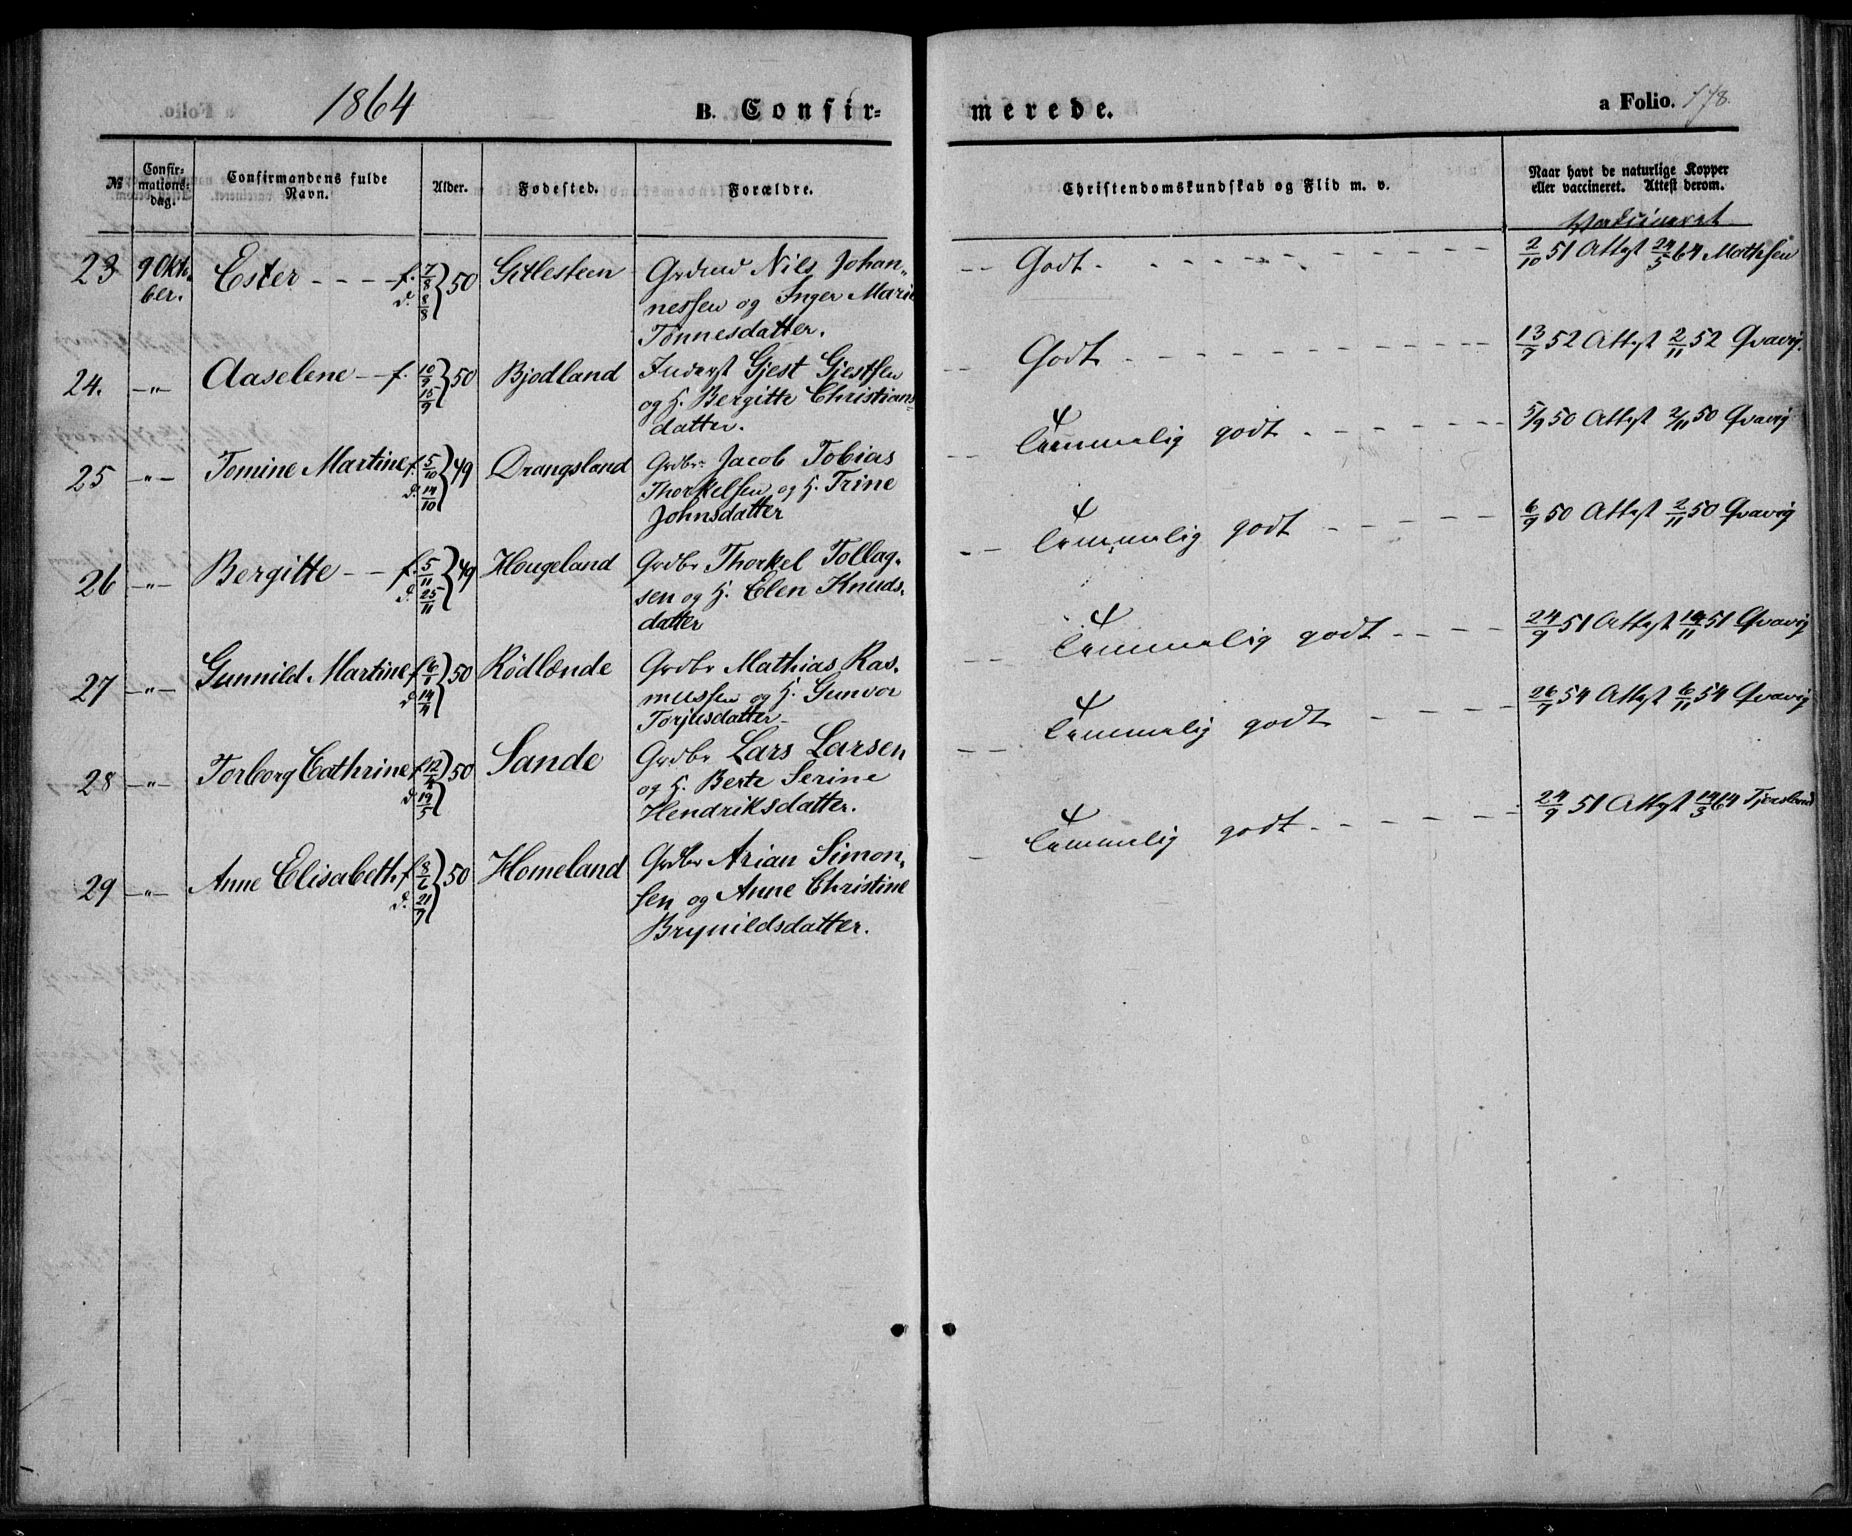 1864 B. Confir- merede. a Folio. 178.
№ Confir-mations-dag. Confirmandens fulde Navn. Alder. Fødested. Forældre. Christendomskundskab og Flid m. v. Naar havt de naturlige Kopper eller vaccineret. Attest derom.
Vaksineret
23 9 Oktbr. Ester - - - - f. 7/8 50 Gitlesteen Grdmd Nils Johan- -- Godt - - - 2/10 51 Attest 24/5 64 Mathsen
ber. d. 8/8 nessen og Inger Marie
Tønnesdatter.
24. -"- Aaselene - f. 10/9 50 Bjodland Inderst Gjest Gjestsen -- Godt - - - 13/7 52 Attest 2/11 52 Qvavig.
15/9 og H. Bergitte Christians-
datter.
25 -"- Tomine Martine f. 5/10 49 Drangsland Grdbr. Jacob Tobias -- Temmelig godt - - - 5/9 50 Attest 2/11 50 Qvavig
d. 14/10 Thorkelsen og H. Trine
Johnsdatter
26 -"- Bergitte - - f. 5/11 49 Hougeland Grdbr Thorkel Tollag- -- Temmelig godt - - - 6/9 50 Attest 2/11 50 Qvavig
d. 25/11 sen og H. Elen Knuds-
datter
27 -"- Gunnild Martine f 6/1 50 Rödlænde Grdbr Mathias Ras- -- Temmelig godt - - - 24/9 51 Attest 51 Qvavig
d 14/4 mussen og H. Gunvor
Torjusdatter -
28 -"- Torborg Cathrine f 12/4 50 Sande Grdbr Lars Larsen -- Temmelig godt - - - 26/7 54 Attest 6/11 54 Qvavig
d 19/5 og H. Berte Serine
Hendriksdatter.
29 -"- Anne Elisabeth. f 8/6 50 Homeland Grdbr Arian Simon- - Temmelig godt - - - 24/9 51 Attest 14/3 64 Tjorsland
d. 21/7 sen og Anne Christine
Brynildsdatter.